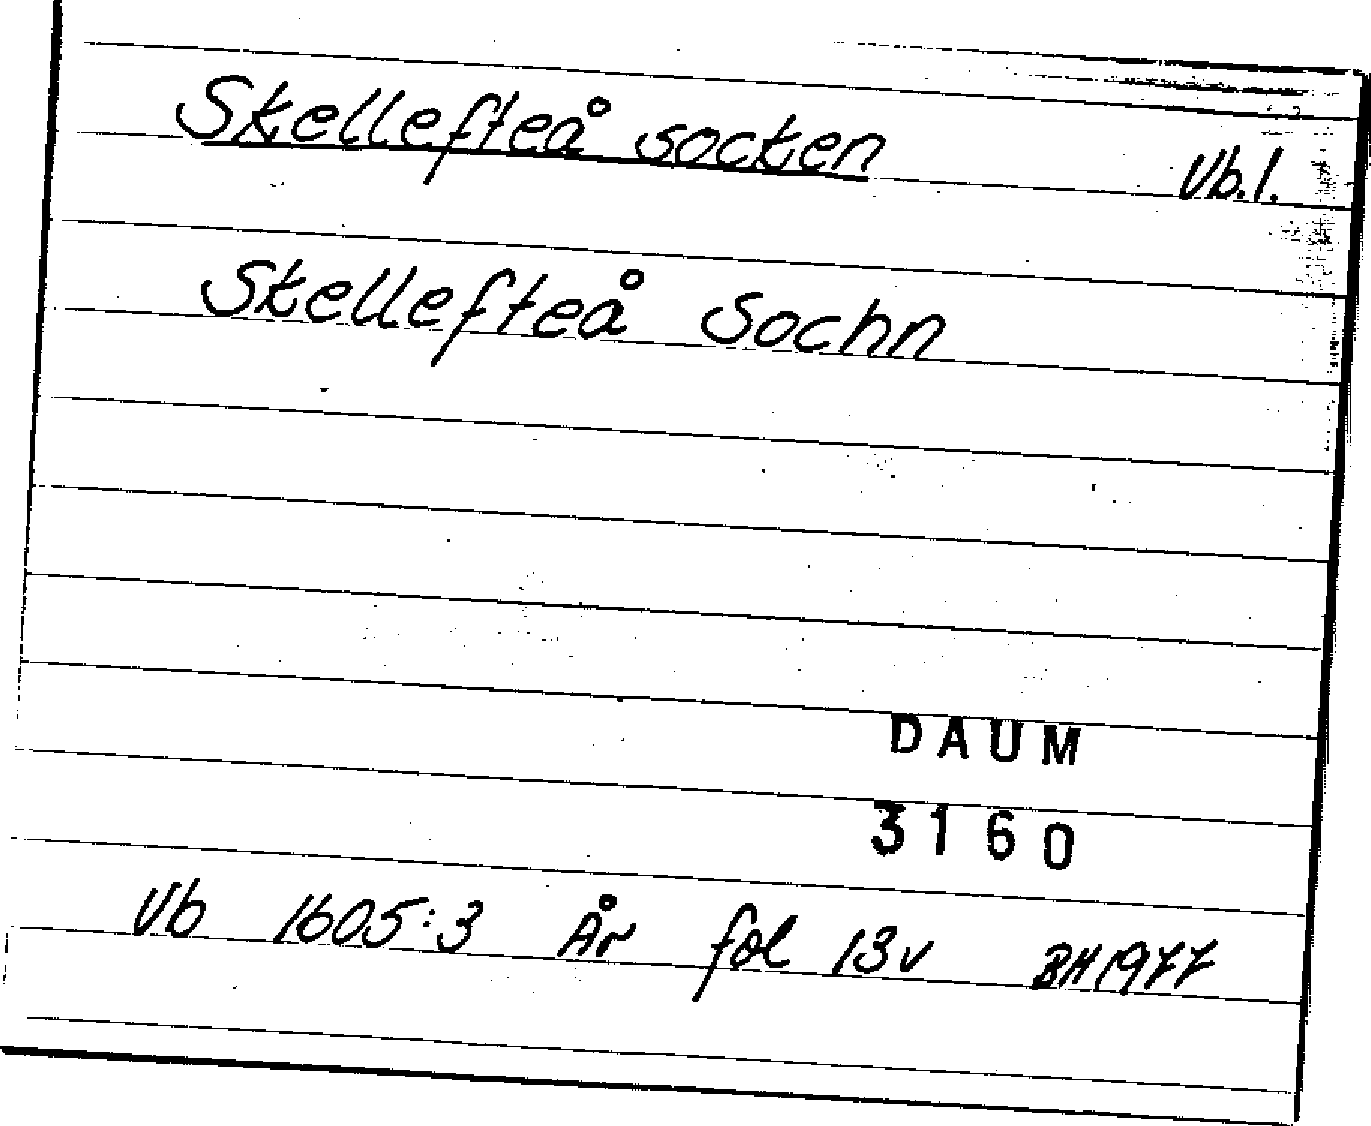 Skellefteå socken
Vb.l.
Skellefteå Sochn
DAUM
3160
Vb 1605:3 År fol 13v BH 1977